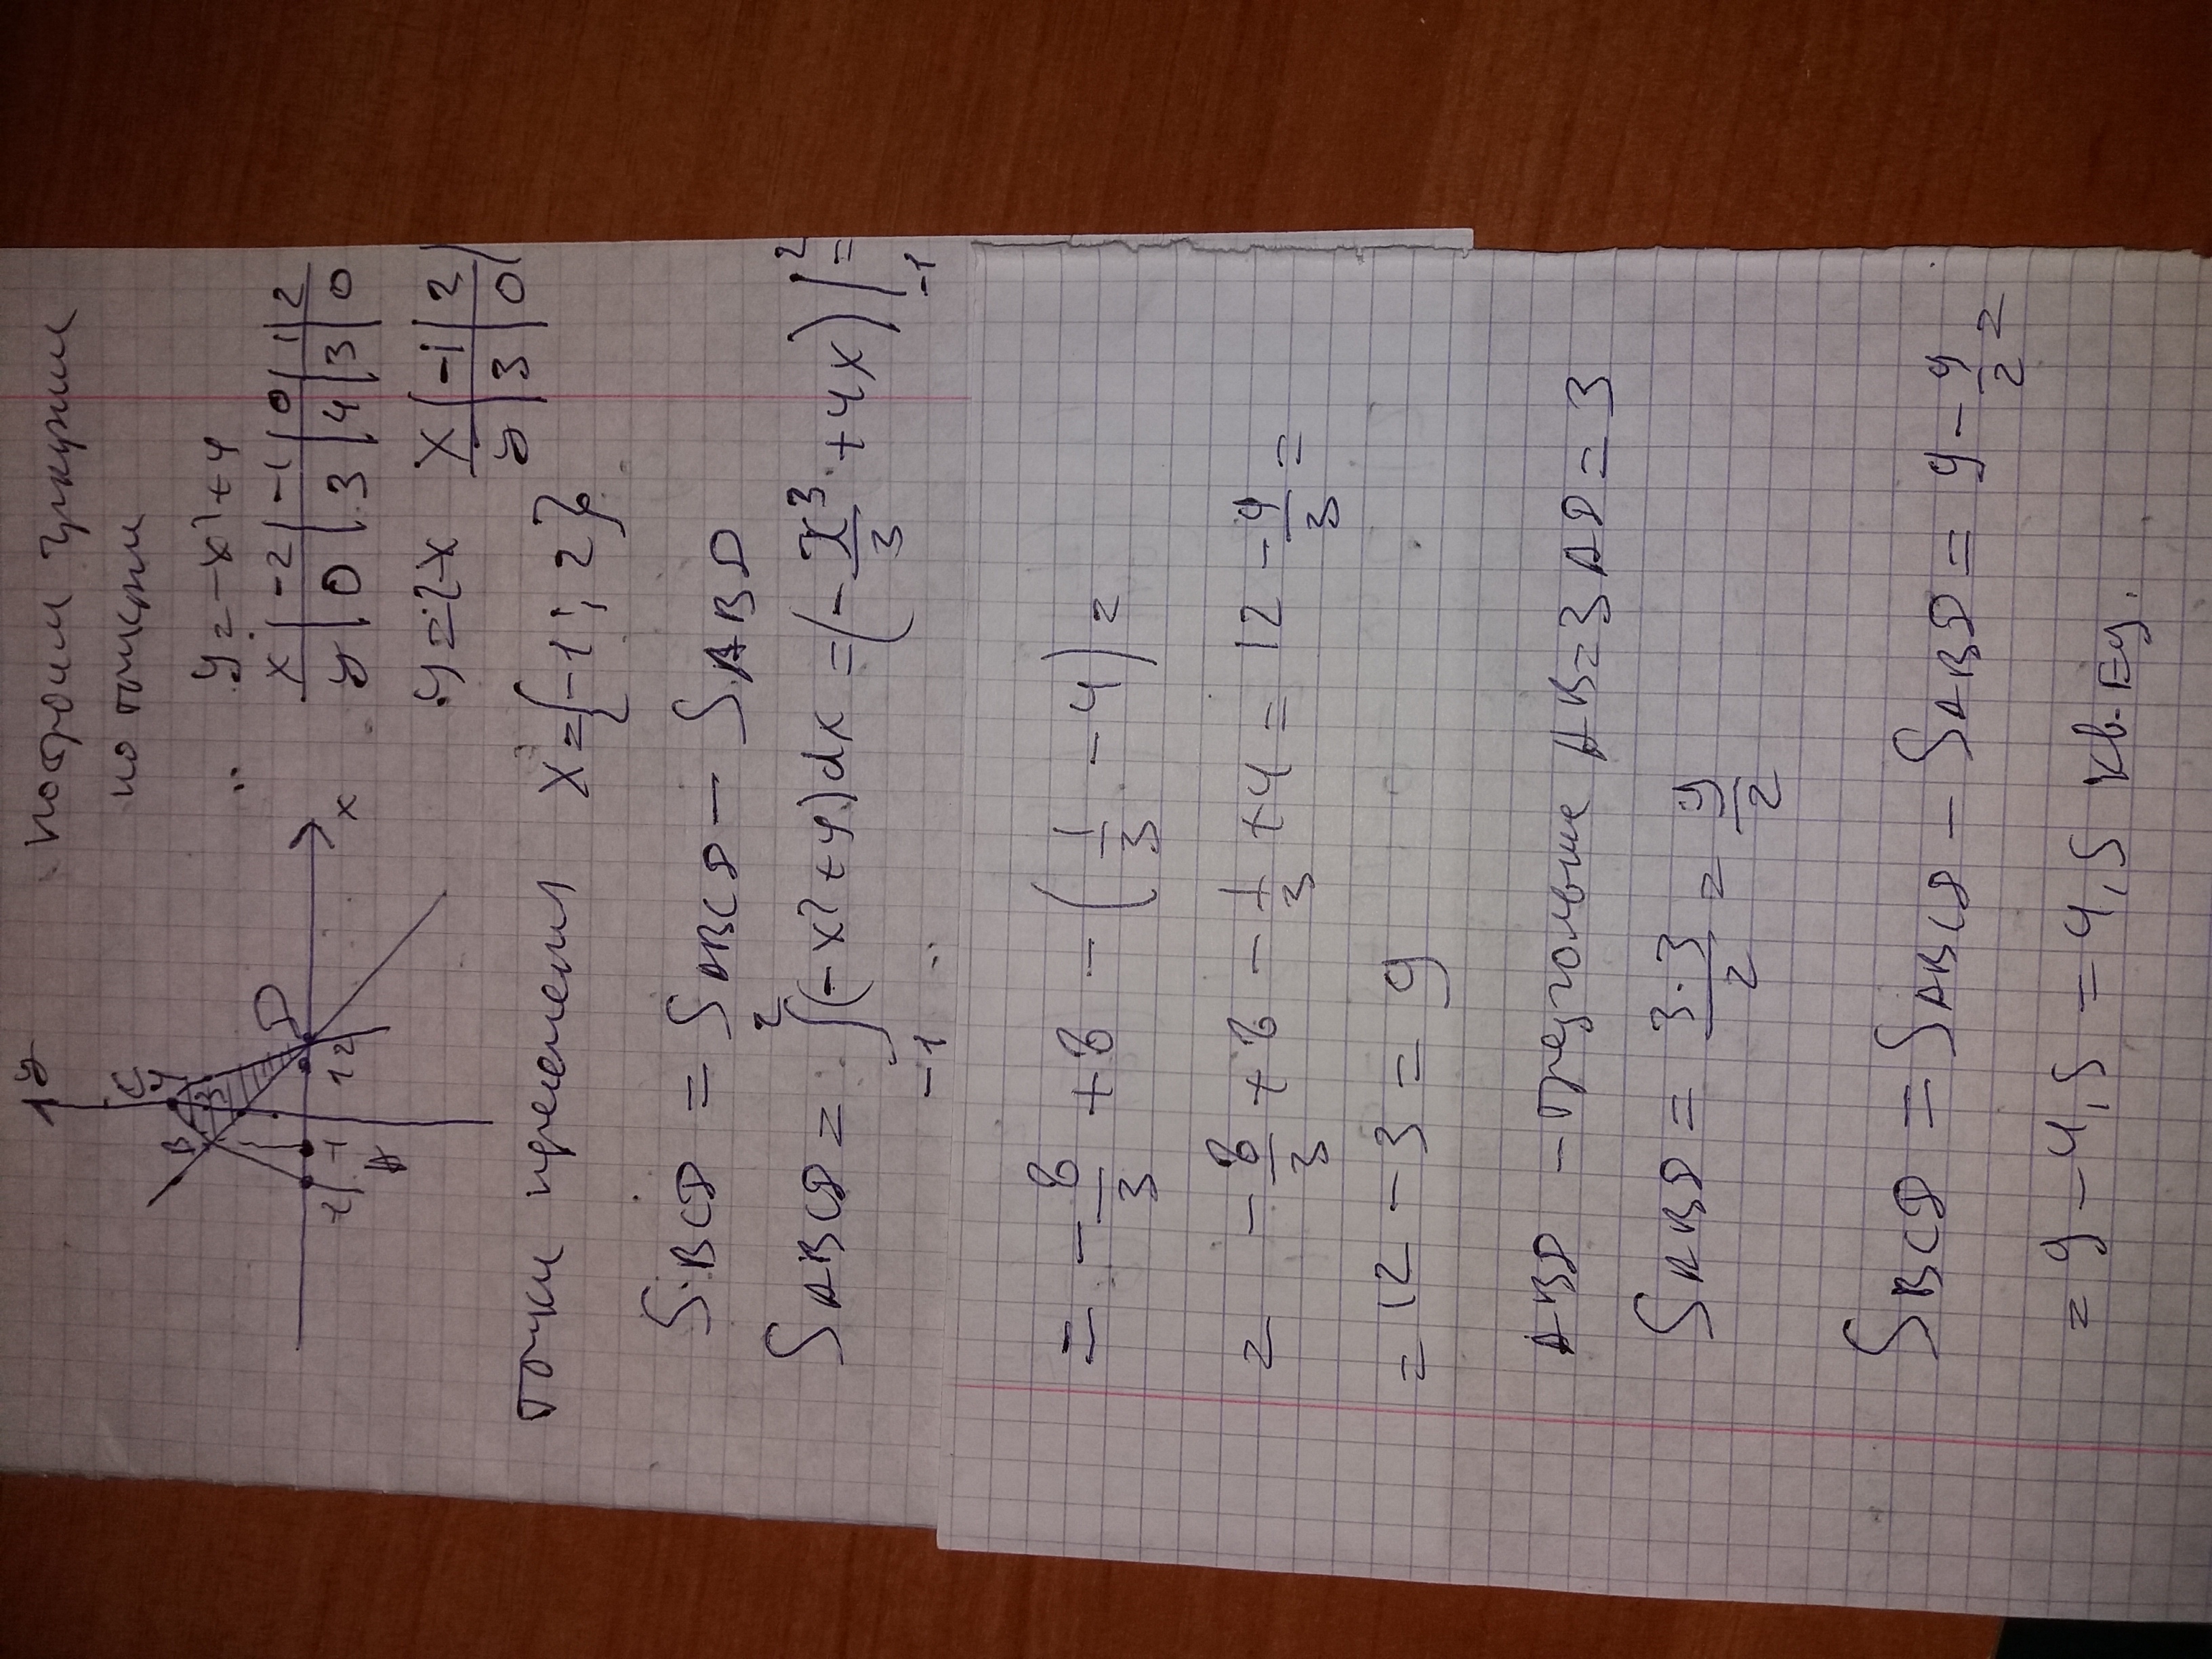 Построим функции
по точкам
y = -x² + 4
x | -2 | -1 | 0 | 1 | 2
y | 0 | 3 | 4 | 3 | 0
y = 2-x
x | -1 | 2
y | 3 | 0
y
C
B
4
3
D
x
-2 -1 1 2
A
точки пересечения x = {-1; 2}
S BCD = S ABCD - S ABD
S ABCD = ∫₋₁² (-x² + 4)dx = (-x³/3 + 4x)|₋₁² =
= -8/3 + 8 - (1/3 - 4) =
= -8/3 + 8 - 1/3 + 4 = 12 - 9/3 =
= 12 - 3 = 9
ABD - треугольник AB = 3 AD = 3
S ABD = 3·3/2 = 9/2
S BCD = S ABCD - S ABD = 9 - 9/2 =
= 9 - 4,5 = 4,5 кв. ед.